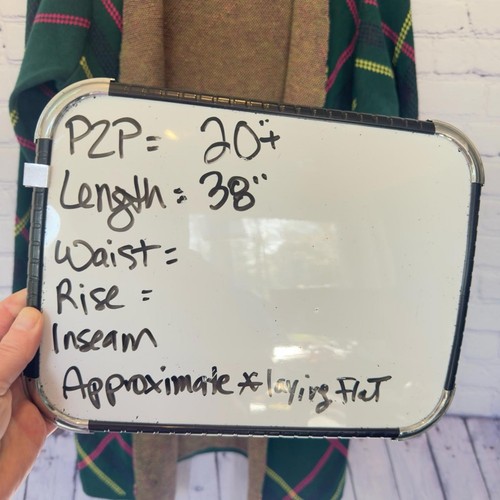 P2P = 20+
Length = 38"
Waist =
Rise =
Inseam
Approximate * laying FlaT